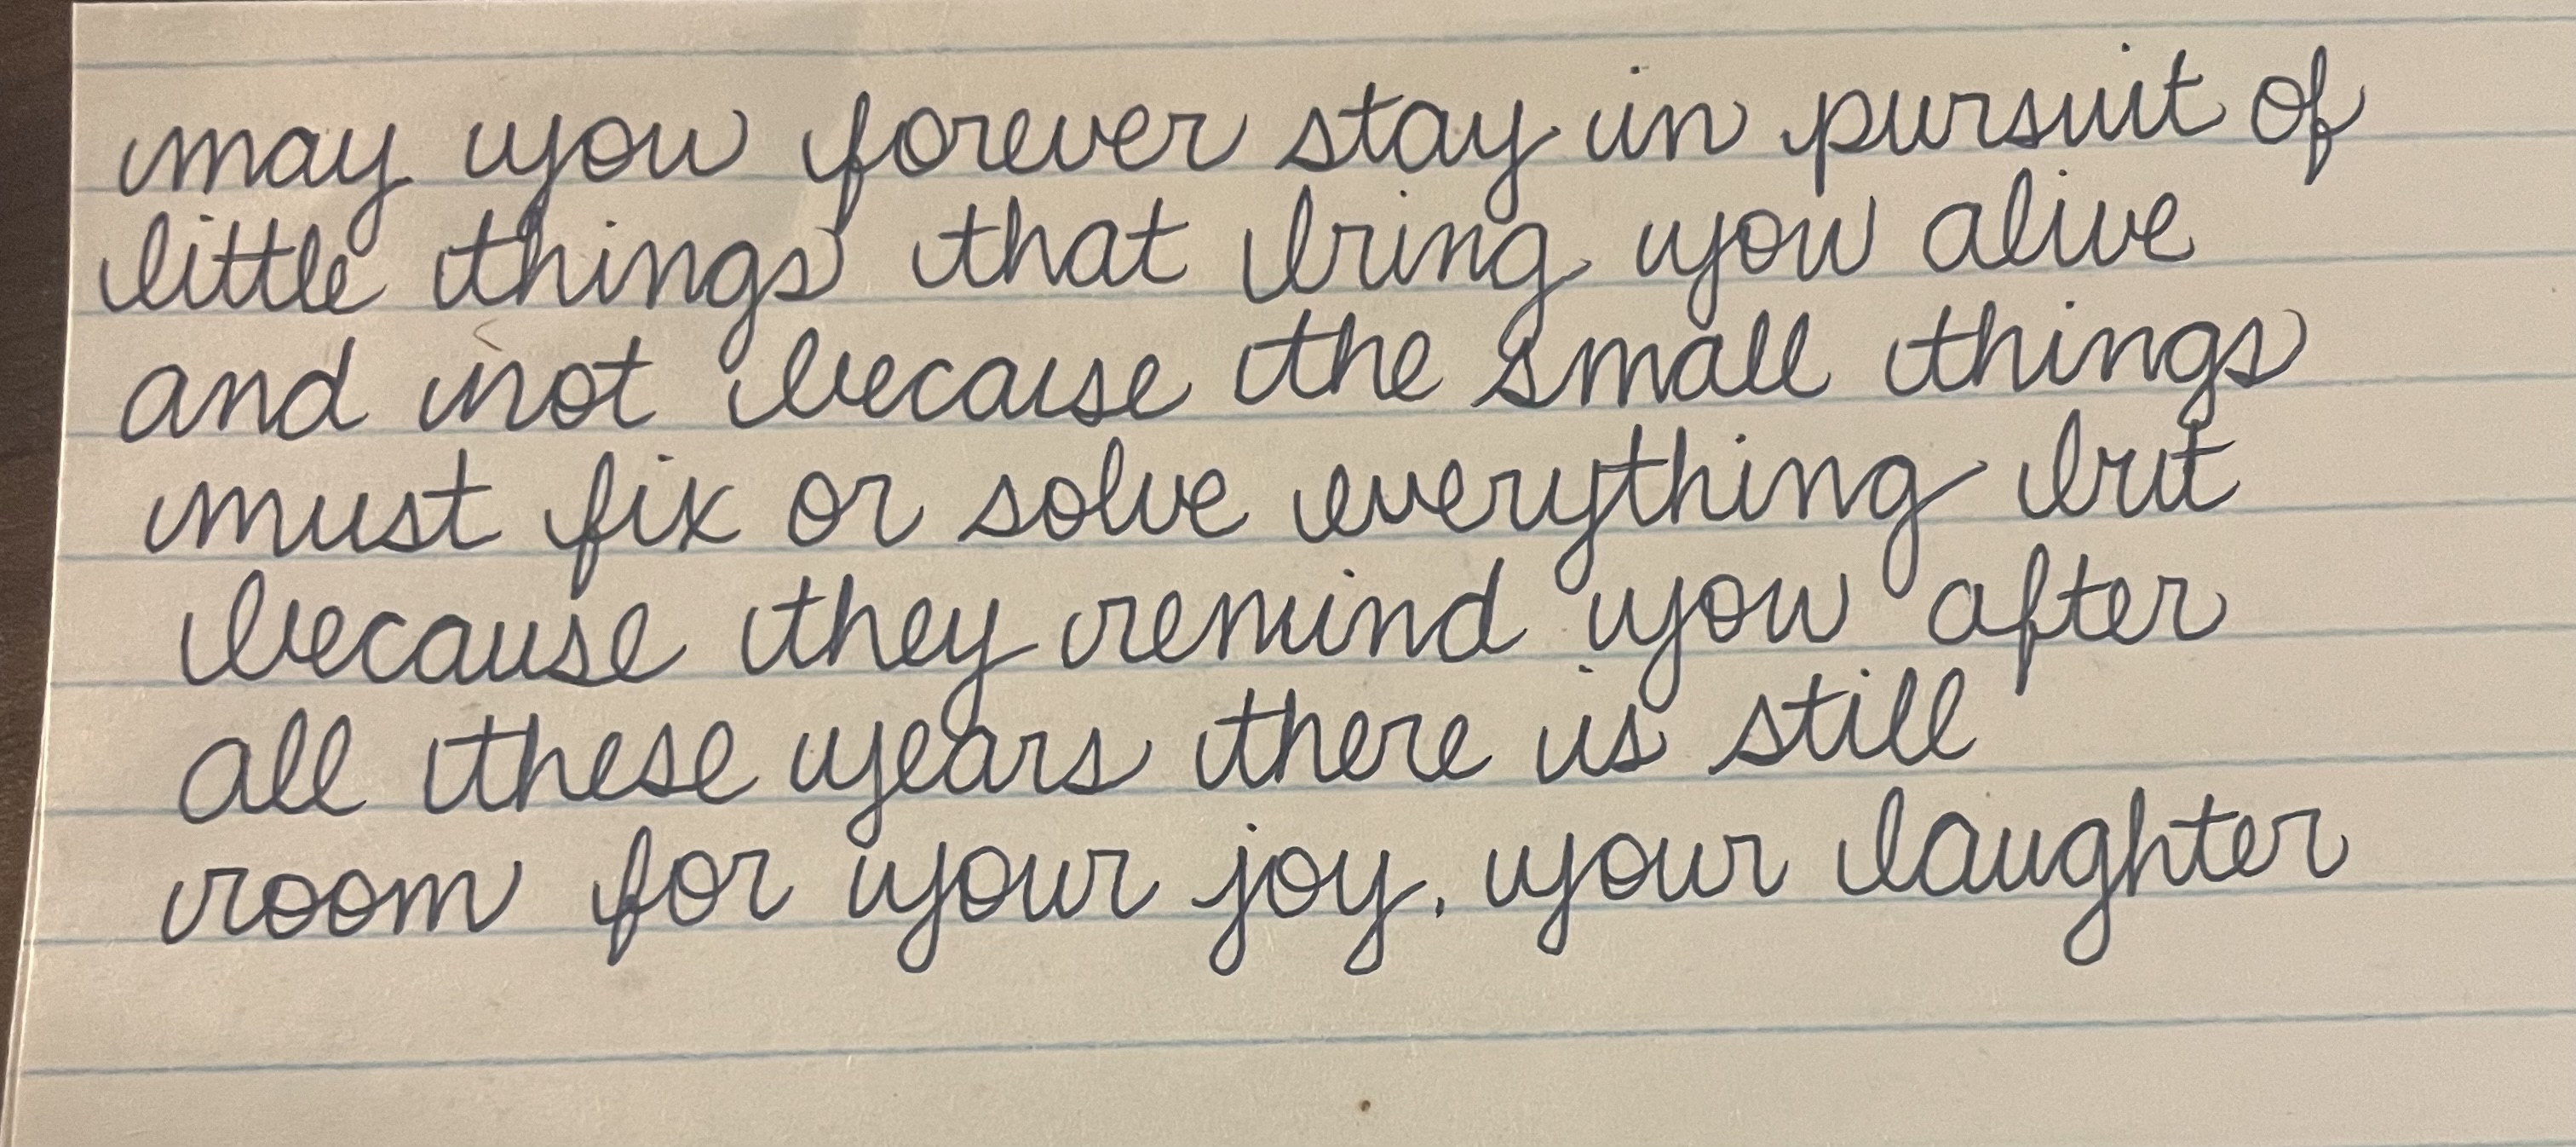 may you forever stay in pursuit of
little things that bring you alive
and not because the small things
must fix or solve everything but
because they remind you after
all these years there is still
room for your joy. your laughter